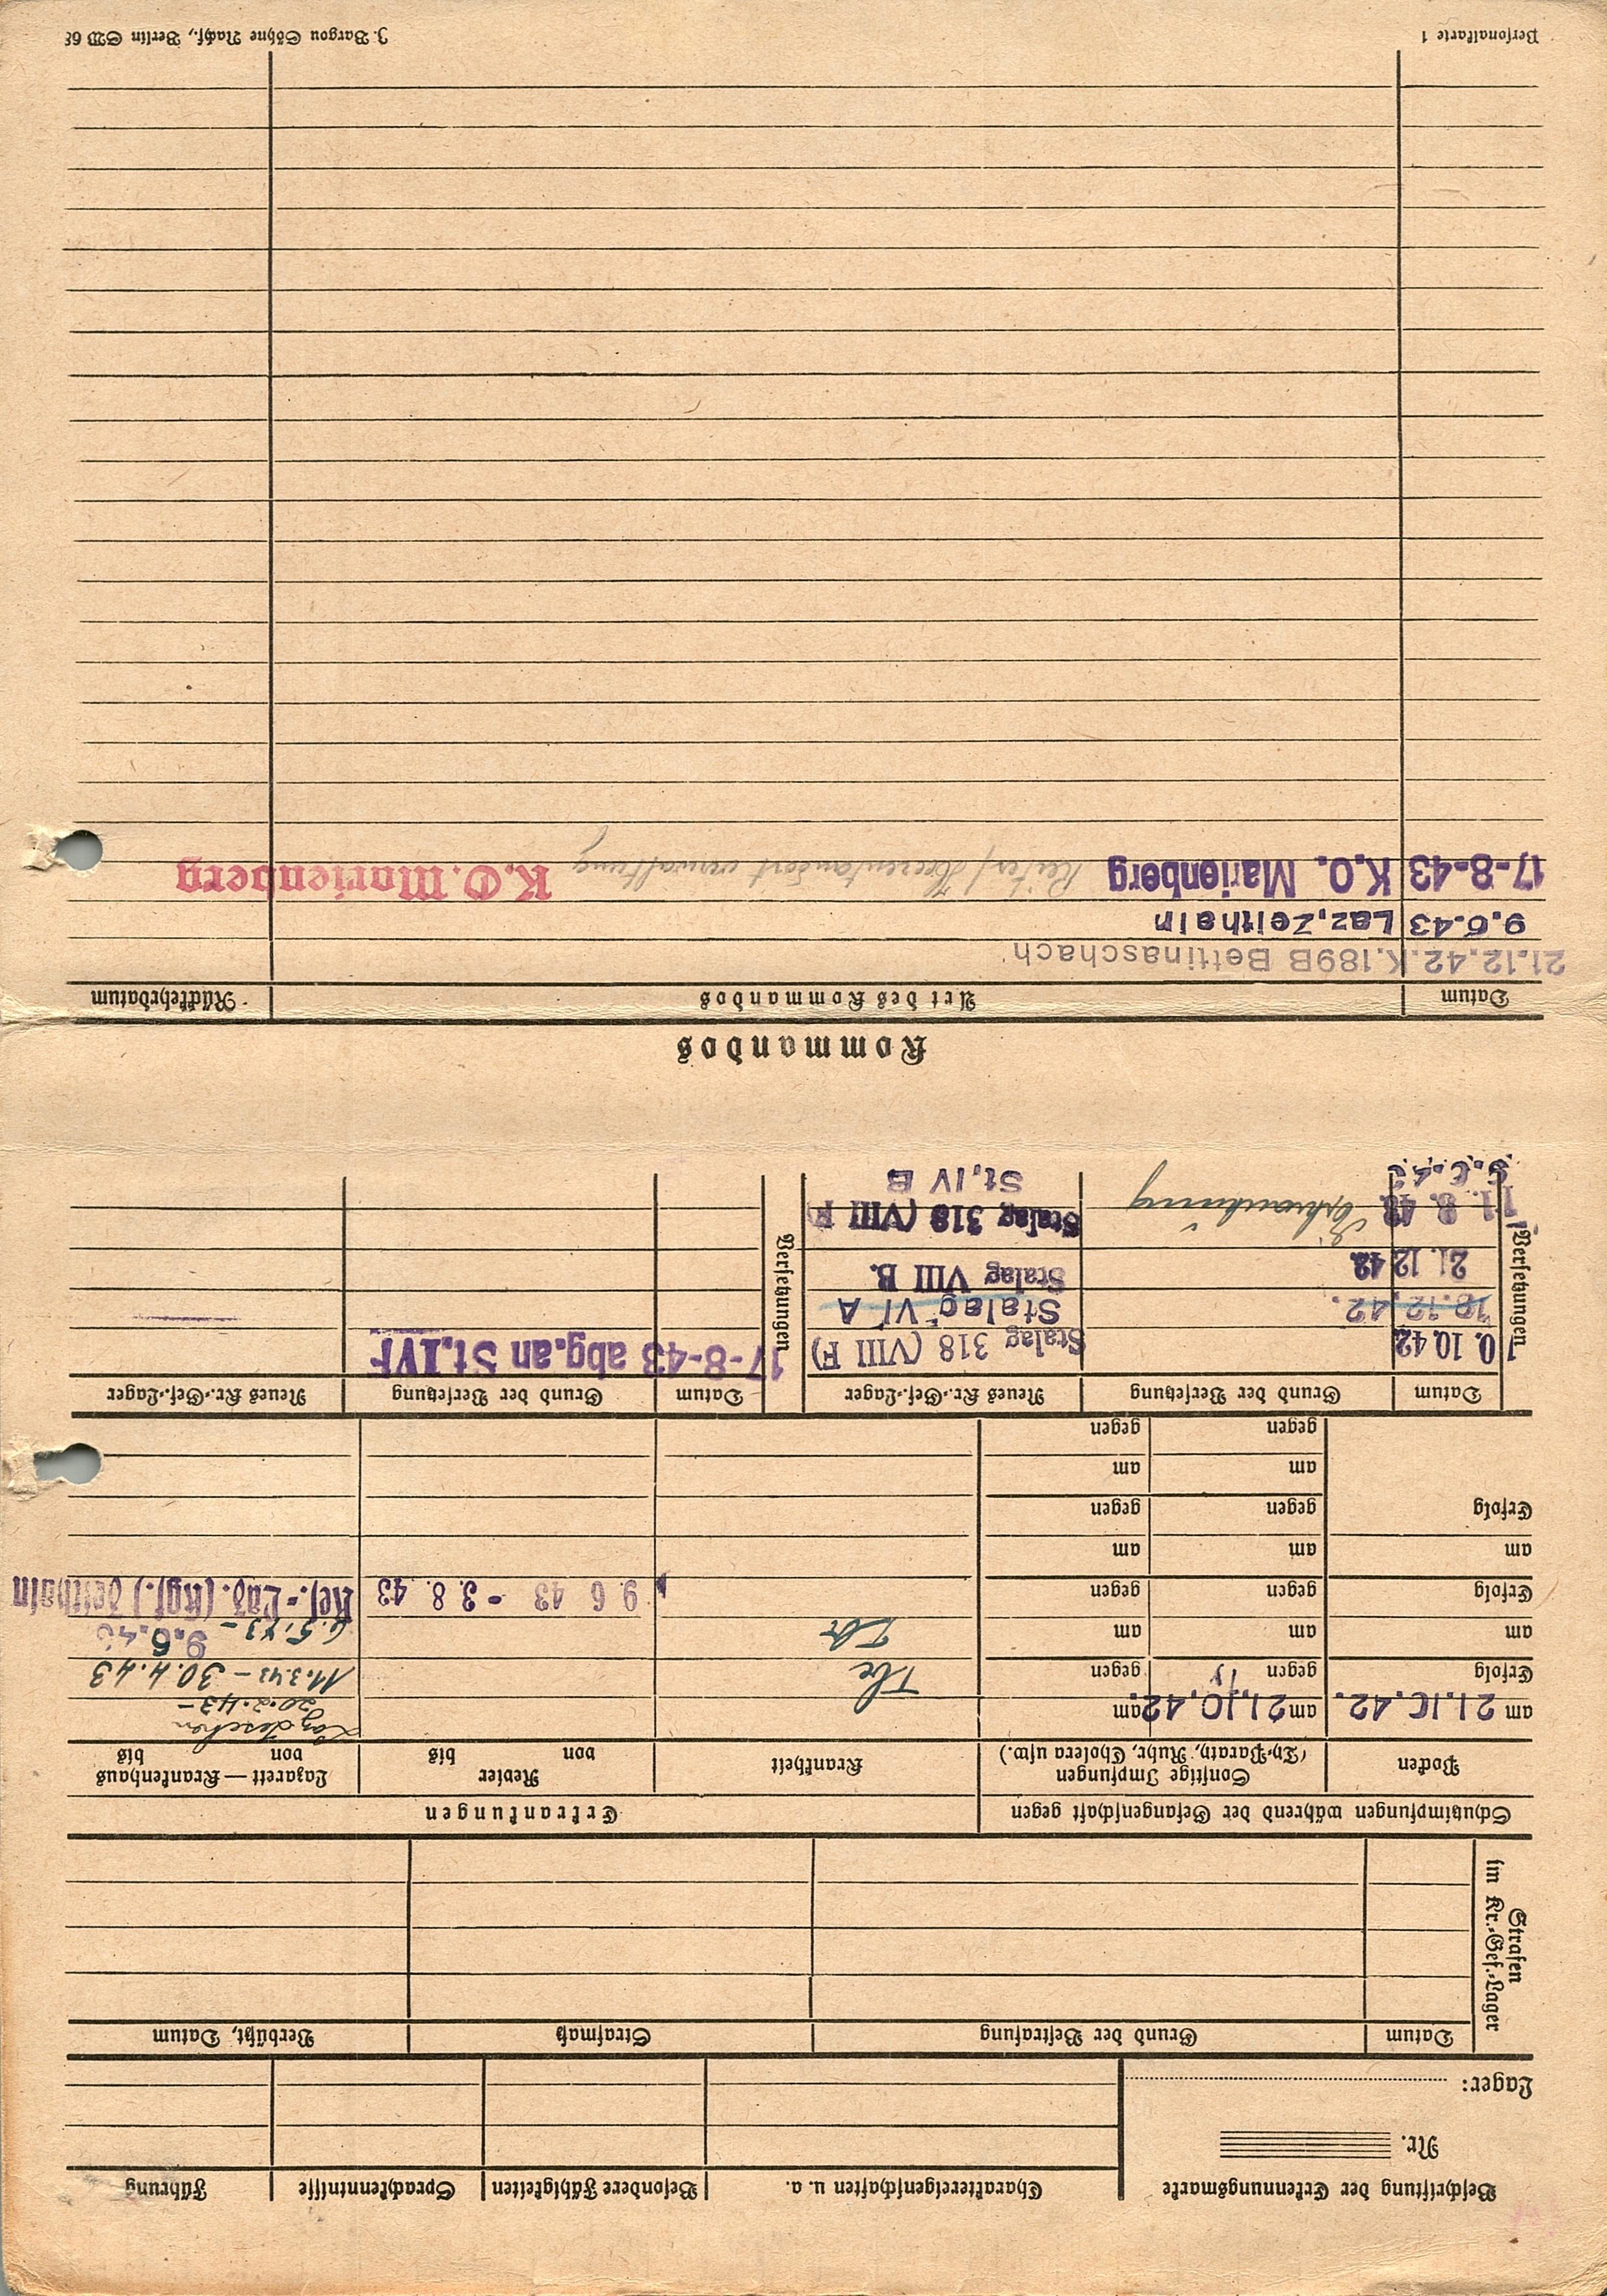 Beschriftung der Erkennungsmarke
Charaktereigenschaften u. a.
Besondere Fähigkeiten
Sprachkenntnisse
Führung
Nr.
Lager:
Strafen
im Kr.-Gef.-Lager
Datum
Grund der Bestrafung
Strafmaß
Verbüßt, Datum
Schutzimpfungen während der Gefangenschaft gegen
Erkrankungen
Pocken
Sonstige Impfungen
(Ty.-Paraty., Ruhr, Cholera usw.)
Krankheit
Revier
von bis
Lazarett — Krankenhaus
von bis
am 21.10.42. am 21.10.42. am
20.2.43 –
Erfolg gegen gegen Tbc 11.3.43 – 30.4.43
am am am 6.5.43 – 9.6.43
Erfolg gegen gegen 9 6 43 - 3. 8. 43 Res.-Laz. (Kgf.) Zeithain
am am am
Erfolg gegen gegen
am am
gegen gegen
Versetzungen
Datum Grund der Versetzung Neues Kr.-Gef.-Lager
Versetzungen
Datum Grund der Versetzung Neues Kr.-Gef.-Lager
0. 10. 42 Stalag 318 (VIII F) 17-8-43 abg.an St.IVF
18.12.42. Stalag VI A
21. 12 42 Stalag VIII B.
Stalag 318 (VIII F)
St.IV B
Kommandos
Datum Art des Kommandos Rückkehrdatum
21.12.42. K.189B Bettinaschach
9.6.43 Laz.Zeithain
17-8-43 K.O. Marienberg K.O. Marienberg
Personalkarte 1
J. Bargou Söhne Nachf., Berlin SW 68